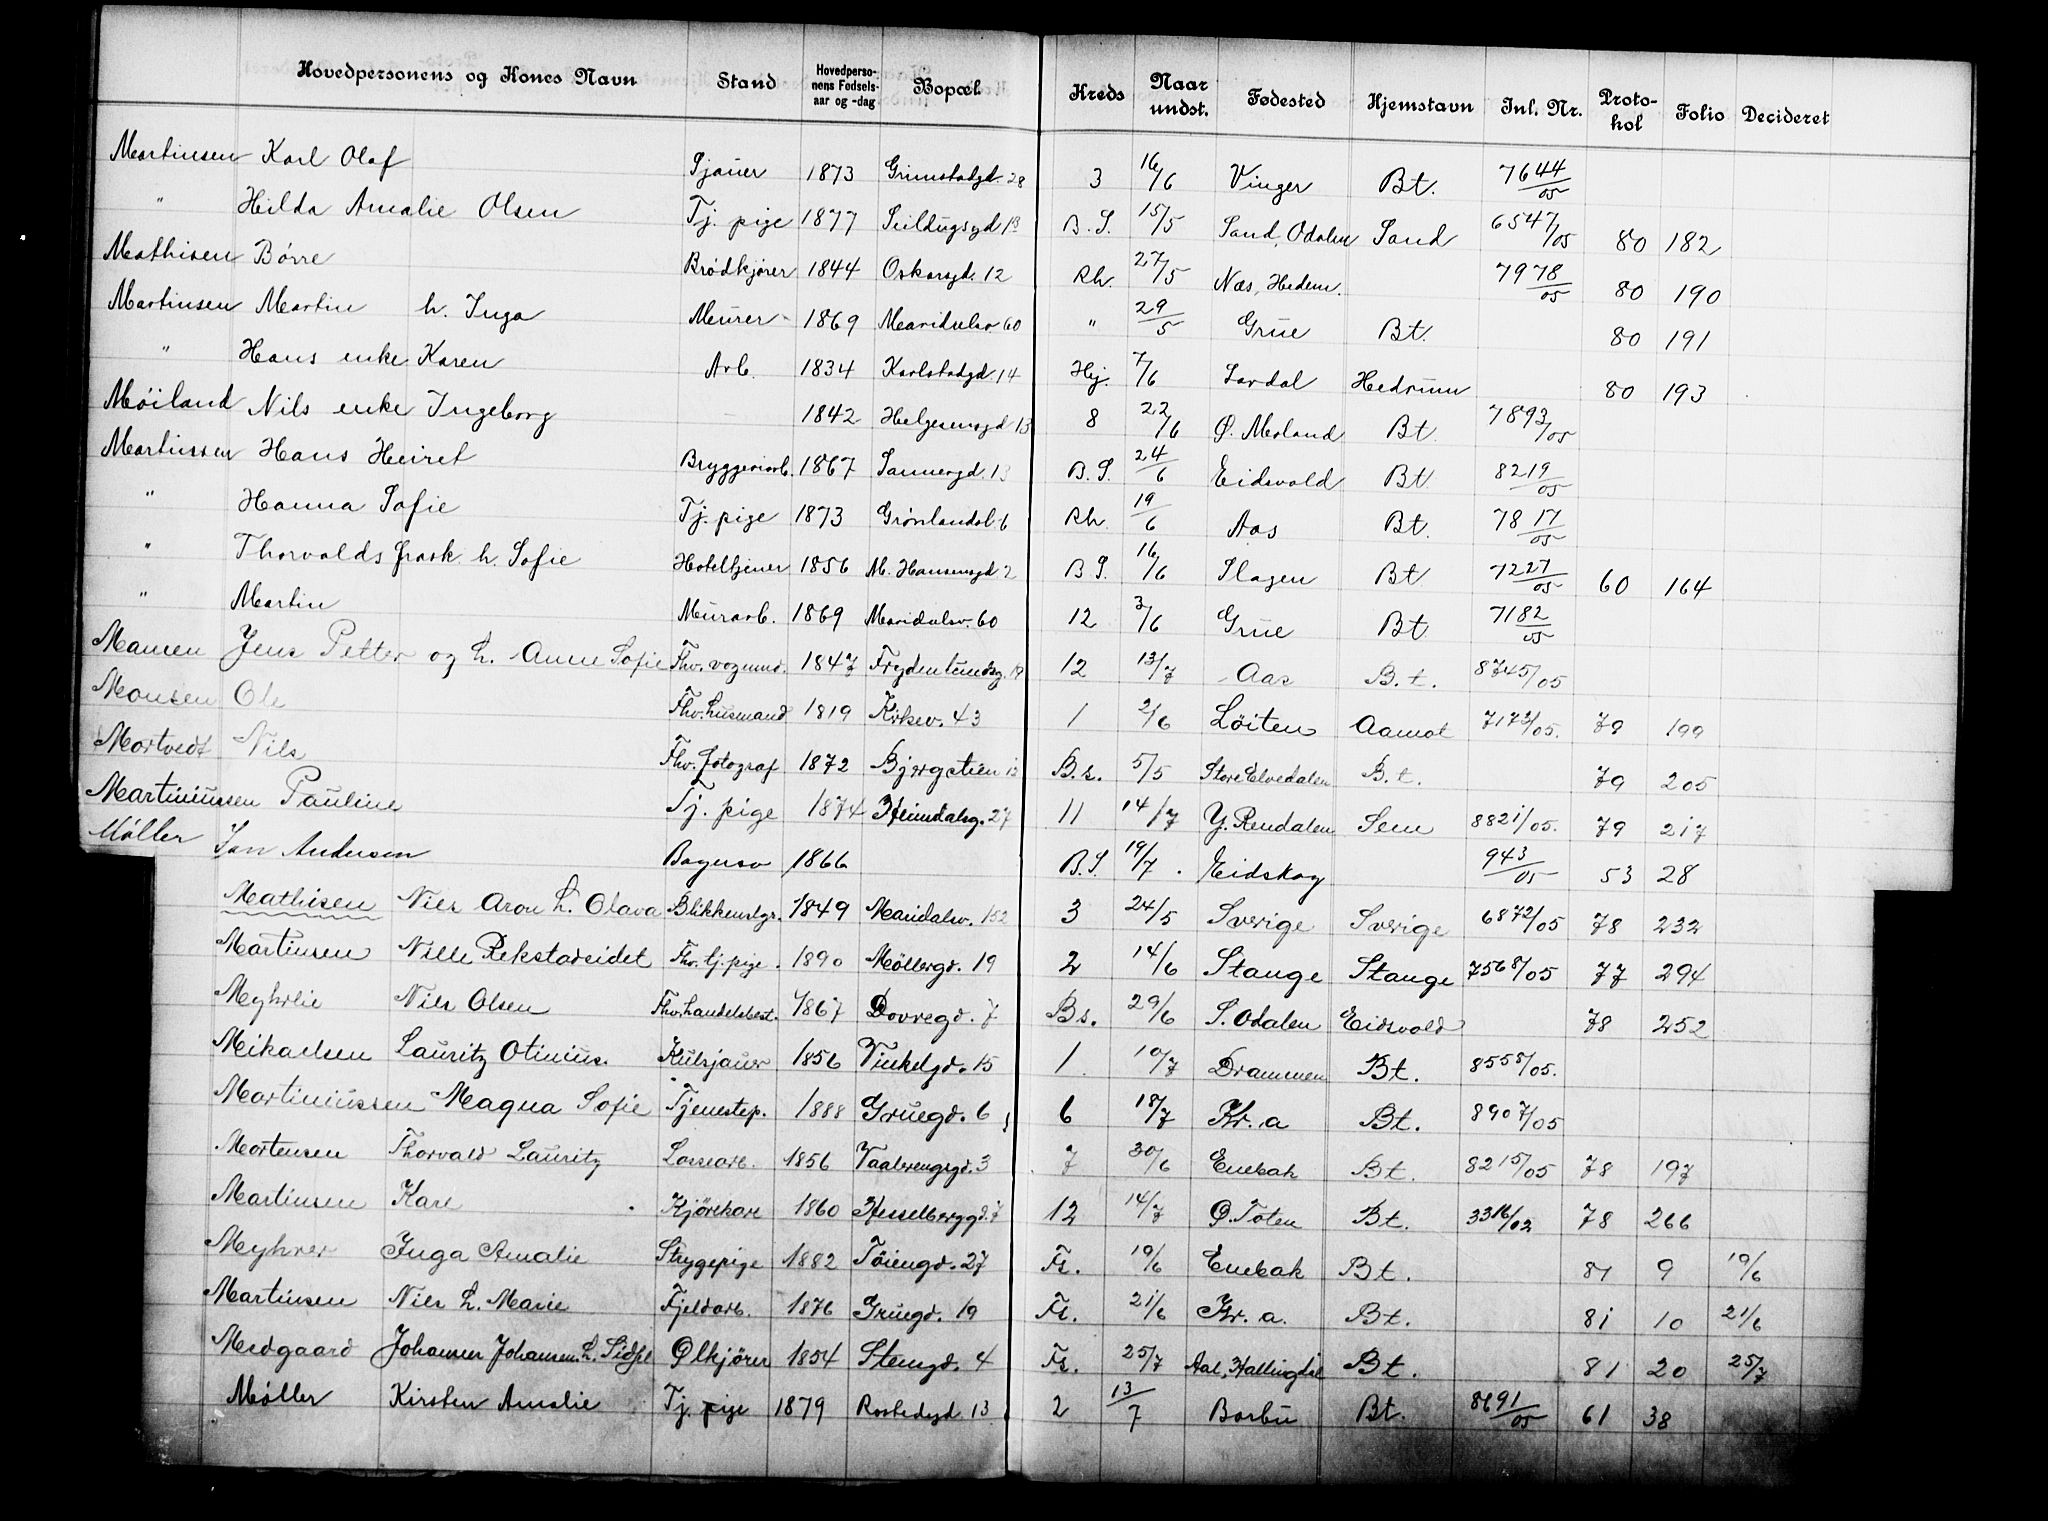 Hovedpersonens og Kones Navn Stand Hovedperso-nens Fødsels-aar og -dag Bopæl Kreds Naar undst. Fødested Hjemstavn Inl. Nr. Proto-kol Folio Decideret
Martinsen Karl Olaf Sjauer 1873 Grimstadgd. 28 3 16/6 Vinger Bt. 7644/05
" Hilda Amalie Olsen Tj. pige 1877 Seildugsgd 13 B. S. 15/5 Sand, Odalen Sand 6547/05 80 182
Mathisen Børre Brødkjører 1844 Oskarsgd. 12 Rh. 27/5 Næs, Hedem. 7978/05 80 190
Martinsen Martin h. Inga Meurer 1869 Maridalsv 60 " 29/5 Grue Bt. 80 191
" Hans enke Karen Arb. 1834 Karlstadgd. 14 Hej. 7/6 Lardal Hedrum 80 193
Møiland Nils enke Ingeborg 1842 Helgesensgd 13 8 22/6 Ø. Moland Bt. 7893/05
Martinssen Hans Heiret Bryggeriarb. 1867 Sannergd. 13 B. S. 24/6 Eidsvold Bt. 8219/05
" Hanna Sofie Tj. pige 1873 Grønlandsl. 6 Rh. 19/6 Aas Bt. 7817/05
" Thorvald h. Sofie Hoteltjener 1856 M. Hansensgd 2 B S. 16/6 Slagen Bt 7227/05 60 164
" Martin Murarb. 1869 Maridalsv. 60 12 3/6 Grue Bt 7182/05
Mansen Jens Petter og h. Anne Sofie Fhv. vognmd. 1847 Frydenlundsg. 19 12 13/7 Aas B. t. 8745/05
Monsen Ole Fhv. husmand 1819 Kirkev. 43 1 2/6 Løiten Aamot 7172/05. 79 199
Mortvedt Nils Fhv. fotograf 1872 Bjergstien 13 B. s. 5/5 Store Elvedalen B. t. 79 205
Martiniussen Pauline Tj. pige 1874 Heimdalsg. 27 11 14/7 Y. Rendalen Sem 8821/05. 79 217
Møller Jan Andersen Bagersv 1866 B. S. 19/7 Eidskog 943/05 53 28
Mathisen Nils Aron h. Olava Blikkenslgr. 1849 Maridalsv. 152 3 24/5 Sverige Sverige 6872/05 78 232
Martinsen Nille Rekstadeidet Fhv. tj. pige 1890 Møllergd. 19 2 14/6 Stange Stange 7568/05 77 294
Myhrlie Nils Olsen Fhv. handelsbest. 1867 Dovregd. 7 Bs. 29/6 S. Odalen Eidsvold 78 252
Mikaelsen Lauritz Otinius Kulsjauer 1856 Vinkelgd. 15 1 10/7 Drammen Bt. 8558/05.
Martiniussen Magna Sofie Tjenestep. 1888 Gruegd. 6 6 18/7 Kr. a Bt. 8907/05
Mortensen Thorvald Lauritz Lossearb. 1856 Vaalerengsgd. 3 7 30/6 Enebak Bt. 8215/05 78 197
Martinsen Kare Kjørekare 1860 Hesselberggd. 7 12 14/7 Ø. Toten Bt. 3316/02 78 266
Myhrer Inga Amalie Strygepige 1882 Tøiengd. 27 Fs. 19/6 Enebak Bt. 81 9 19/6
Martinsen Nils h. Marie Fjeldarb. 1876 Gruegd. 19 Fs. 21/6 Kr. a. Bt. 81 10 21/6
Medgaard Johannes Johansen h. Sidsel Ølkjører 1854 Stengd. 4 Fs. 25/7 Aal, Hallingdal Bt. 81 20 25/7
Møller Kirsten Amalie Tj. pige 1879 Rostedgd. 13 2 13/7 Barbu Bt. 8691/05 61 38